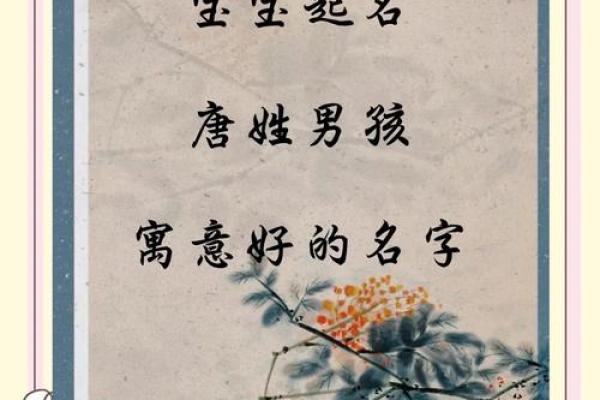 宝宝起名
唐姓男孩
寓意好的名字